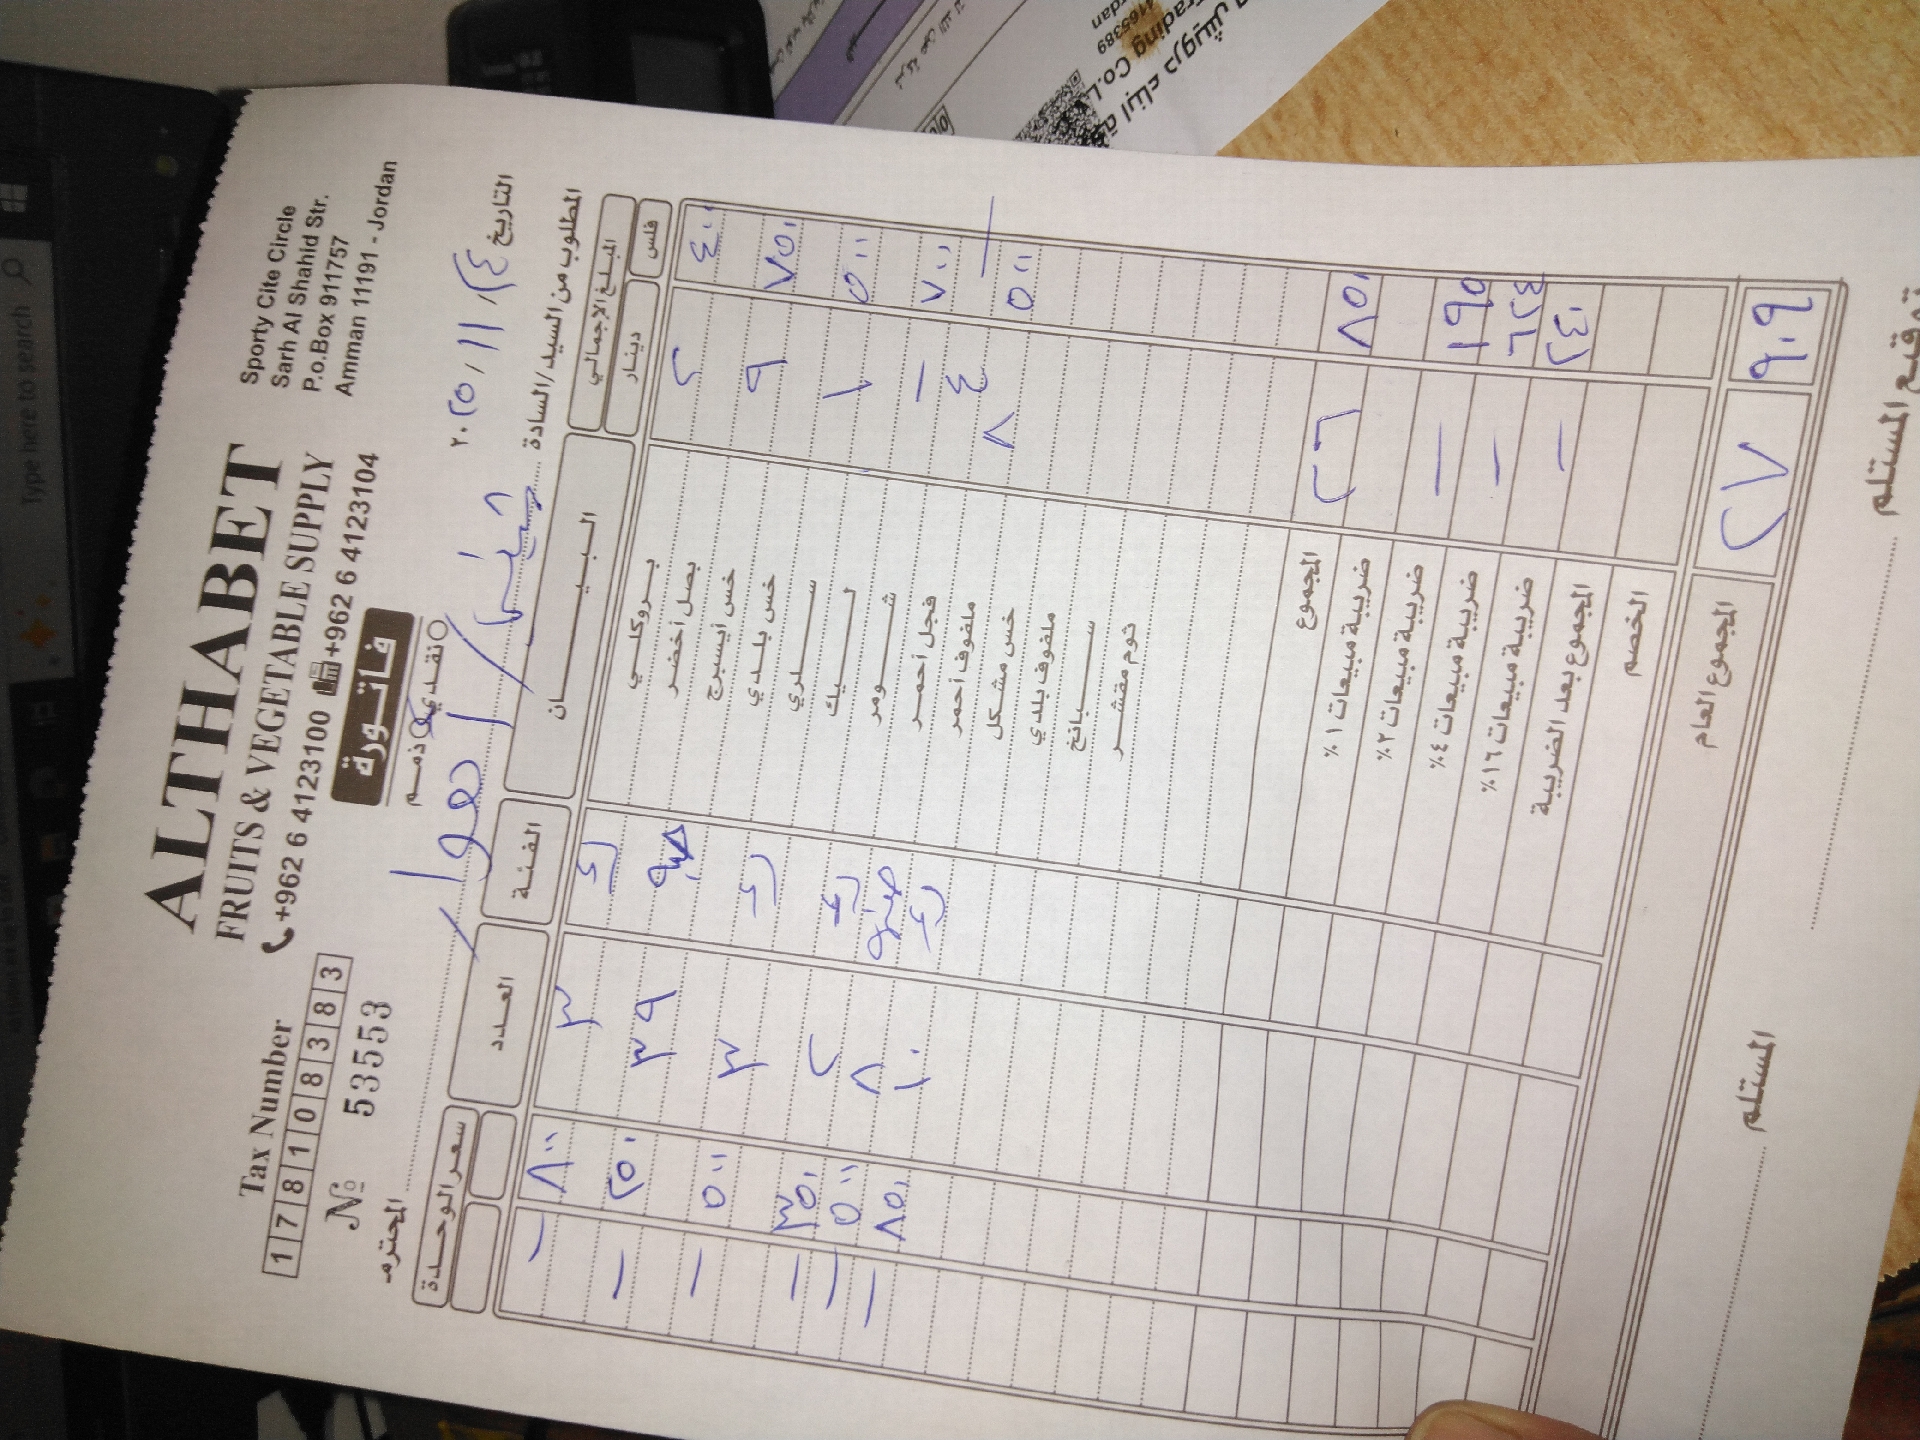 ALTHABET
FRUITS & VEGETABLE SUPPLY
+962 6 4123100 +962 6 4123104
Sporty Cite Circle
Sarh Al Shahid Str.
P.o.Box 91757
Amman 11191 - Jordan
Tax Number
178108383
№ 53553
فاتورة
نقدي ذمم
التاريخ ٢٠٢٥/١١/٢٤
المطلوب من السيد/السادة
المحترم
سعر الوحدة العدد الفئة البيـــــان المبلغ الإجمالي
دينار فلس
— ٨٠٠ ٣ بروكلي ٢ ٤٠٠
بصل أخضر
— ٢٥٠ ٣٩ خس أيسبرج ٩ ٧٥٠
خس بلدي
— ٥٠٠ ٣ سلري ١ ٥٠٠
ليك
— ٣٥٠ ٢ شومر — ٧٠٠
— ٥٠٠ ٨ فجل أحمر ٤ —
— ٨٥٠ ١٠ ملفوف أحمر ٨ ٥٠٠
خس مشكل
ملفوف بلدي
سبانخ
ثوم مقشر
المجموع ٢٦ ٨٥٠
ضريبة مبيعات ١٪
ضريبة مبيعات ٢٪ — ١٩٥
ضريبة مبيعات ٤٪ —
ضريبة مبيعات ١٦٪ —
المجموع بعد الضريبة
الخصم
المجموع العام ٢٧ ٩٠٩
المستلم
توقيع المستلم
Type here to search
Trading Co.L
4165389